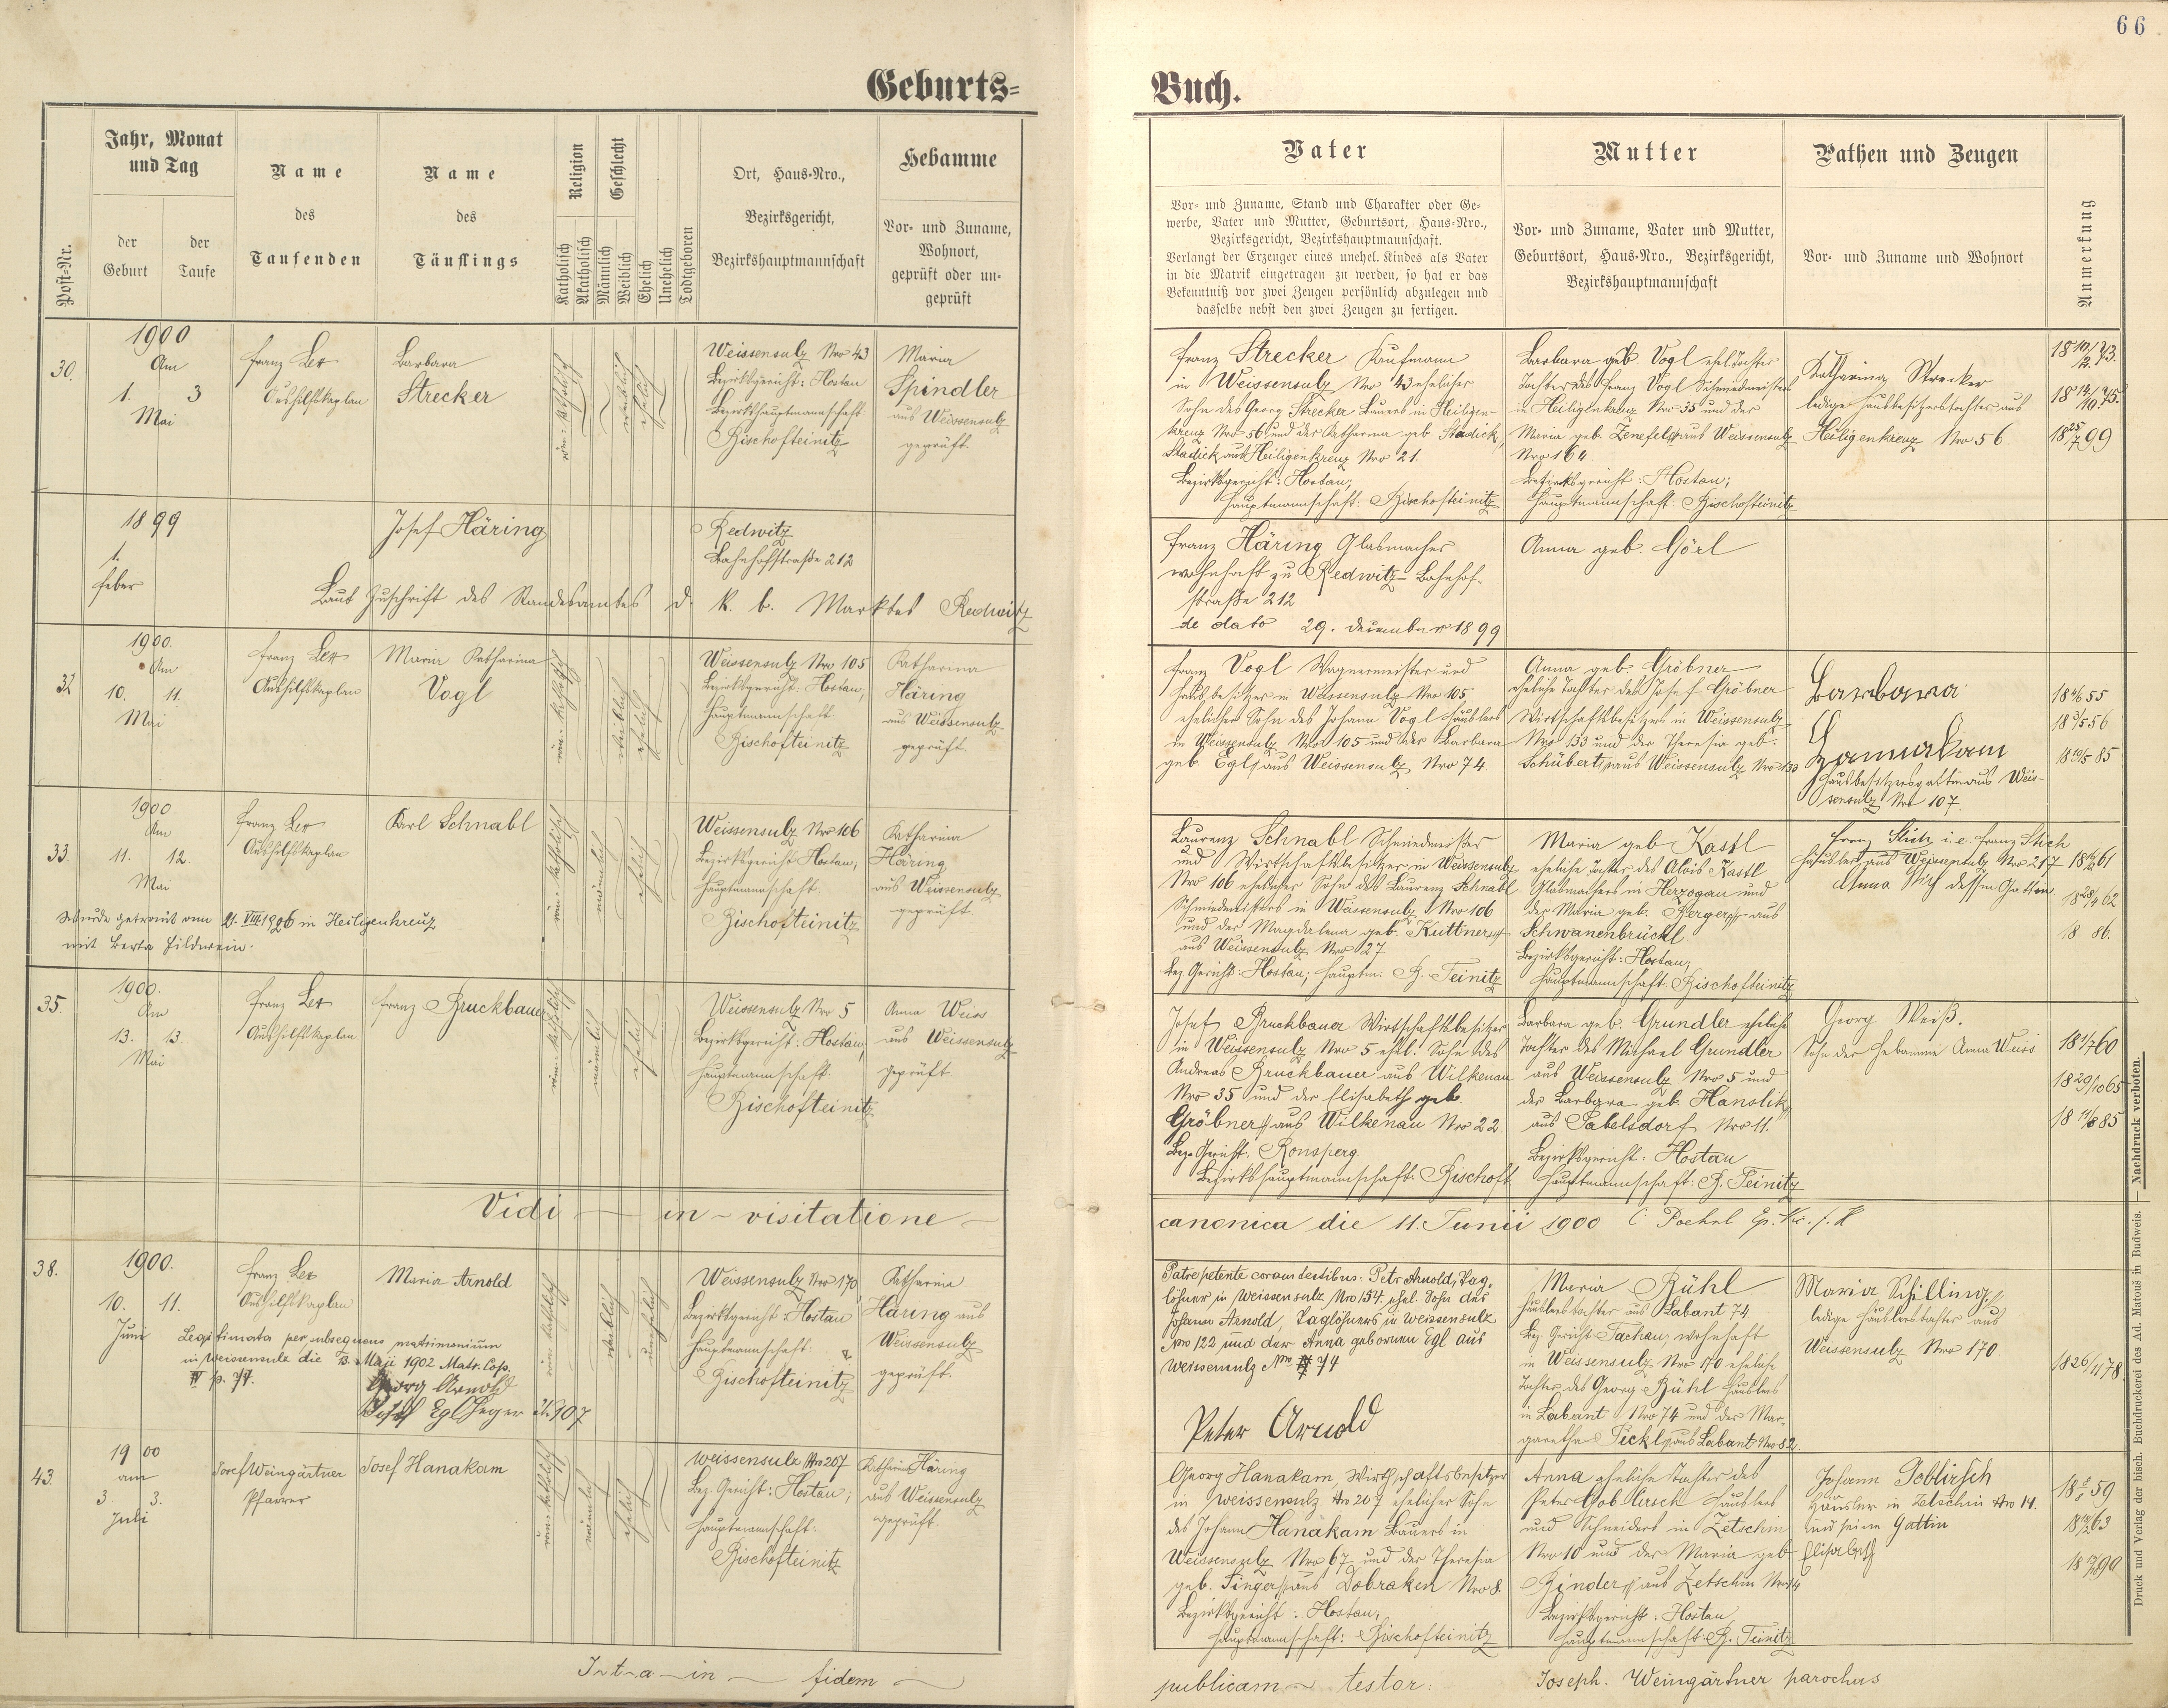 66
Geburts=
Buch.
Post-Nr.
Jahr, Monat
und Tag
der
Geburt
der
Taufe
Name
des
Taufenden
Name
des
Täuflings
Religion
Katholisch
Akatholisch
Geschlecht
Männlich
Weiblich
Ehelich
Unehelich
Todtgeboren
Ort, Haus-Nro.,
Bezirksgericht,
Bezirkshauptmannschaft
Hebamme
Vor- und Zuname,
Wohnort,
geprüft oder un-
geprüft
Vater
Vor- und Zuname, Stand und Charakter oder Ge-
werbe, Vater und Mutter, Geburtsort, Haus-Nro.,
Bezirksgericht, Bezirkshauptmannschaft.
Verlangt der Erzeuger eines unehel. Kindes als Vater
in die Matrik eingetragen zu werden, so hat er das
Bekenntniß vor zwei Zeugen persönlich abzulegen und
dasselbe nebst den zwei Zeugen zu fertigen.
Mutter
Vor- und Zuname, Vater und Mutter,
Geburtsort, Haus-Nro., Bezirksgericht,
Bezirkshauptmannschaft
Pathen und Zeugen
Vor- und Zuname und Wohnort
Anmerkung
30.
1900
Am
1. 3
Mai
Franz Ler
Aushilfskaplan
Barbara
Strecker
röm. katholisch
weiblich
ehelich
Weissensulz Nro 43
Bezirksgericht: Hostau
Bezirkshauptmannschaft
Bischofteinitz
Maria
Spindler
aus Weissensulz
geprüft.
Franz Strecker Kaufmann
in Weissensulz Nro 43 ehelicher
Sohn des Georg Strecker Bauers in Heiligen-
kreuz Nro 56 und der Katharina geb. Stadick,
Stadick aus Heiligenkreuz Nro 21.
Bezirksgericht: Hostau,
Hauptmannschaft: Bischofteinitz
Barbara geb. Vogl ehel. Tochter
Tochter des Franz Vogl Schmiedmeisters
in Heiligenkreuz Nro 35 und der
Maria geb. Zenefels aus Weissensulz
Nro 164.
Bezirksgericht: Hostau;
Hauptmannschaft: Bischofteinitz
Katharina Strecker
ledige Hausbesitzerstochter aus
Heiligenkreuz Nro 56.
18 10/2 73.
18 14/10 75.
18 25/7 99
1899
1.
Feber
Josef Häring
Redwitz
Bahnhofstraße 212
Laut Zuschrift des Standesamtes d. k. b. Marktes Redwitz
Franz Häring Glasmacher
wohnhaft zu Redwitz Bahnhof-
straße 212
de dato 29. december 1899
Anna geb. Görl
32
1900.
Am
10. 11.
Mai
Franz Ler
Aushilfskaplan
Maria Katharina
Vogl
röm. katholisch
weiblich
ehelich
Weissensulz Nro 105
Bezirksgericht: Hostau,
Hauptmannschaft
Bischofteinitz
Katharina
Häring
aus Weissensulz
geprüft
Franz Vogl Wagnermeister und
Hausbesitzer in Weissensulz Nro 105
ehelicher Sohn des Johann Vogl Häuslers
in Weissensulz Nro 105 und der Barbara
geb. Egl aus Weissensulz Nro 74.
Anna geb Gröbner
eheliche Tochter des Josef Gröbner
Wirtschaftsbesitzers in Weissensulz
Nro 133 und der Theresia geb.
Schübert aus Weissensulz Nro 133
Barbara
Hannakam
Hausbesitzersgattin aus Weis-
sensulz Nro 107.
18 55
18 5/5 56
18 85
33.
1900
Am
11. 12.
Mai
Franz Ler
Aushilfskaplan
Karl Schnabl
röm. katholisch
männlich
ehelich
Wurde getraut am 21. VIII. 1926 in Heiligenkreuz
mit Berta
Weissensulz Nro 106
Bezirksgericht Hostau,
Hauptmannschaft.
Bischofteinitz
Katharina
Häring
aus Weissensulz
geprüft.
Laurenz Schnabl Schmiedmeister
und Wirtschaftsbesitzer in Weissensulz
Nro 106 ehelicher Sohn des Laurenz Schnabl
Schmiedmeisters in Weissensulz Nro 106
und der Magdalena geb. Kuttner
aus Weissensulz Nro 27
Bez. Gericht: Hostau; Hauptm. B. Teinitz
Maria geb Kastl
eheliche Tochter des Alois Kastl
Glasmachers in Herzogau und
der Maria geb. Berger aus
Schwanenbrückl.
Bezirksgericht: Hostau,
Hauptmannschaft Bischofteinitz
Franz Stich i.e Franz Stich
Häusler aus Weissensulz Nro 217
Anna Stich dessen Gattin
18 61
18 28/4 62
18 86.
35.
1900.
Am
13. 13.
Mai
Franz Ler
Aushilfskaplan.
Franz Bruckbauer
röm. katholisch
männlich
ehelich
Weissensulz Nro 5
Bezirksgericht: Hostau,
Hauptmannschaft.
Bischofteinitz
Anna Weiss
aus Weissensulz
geprüft.
Josef Bruckbauer Wirtschaftsbesitzer
in Weissensulz Nro 5 ehel. Sohn des
Andreas Bruckbauer aus Wilkenau
Nro 35 und der Elisabeth geb.
Gröbner aus Wilkenau Nro 22.
Bez. Gericht. Ronsperg.
Bezirkshauptmannschaft. Bischoft.
Barbara geb. Grundler eheliche
Tochter des Michael Grundler
aus Weissensulz Nro 5 und
der Barbara geb. Hanslik
aus Pabelsdorf Nro 11.
Bezirksgericht: Hostau
Hauptmannschaft: B. Teinitz
Georg Weiß.
Sohn der Hebamme Anna Weiss
18 1/7 60
18 29/10 65
18 11/8 85
Vidi — in — visitatione —
canonica die 11. Junii 1900
38.
1900.
10. 11.
Juni
Franz Ler
Aushilfskaplan
Maria Arnold
röm. katholisch
weiblich
unehelich
Legitimata per subsequens matrimonium
in Weissensulz die 13. Maji 1902 Matr. Cop.
IV p. 74.
Georg Arnold
Josef Egl Heger No 207
Weissensulz Nro 170
Bezirksgericht: Hostau
Hauptmannschaft:
Bischofteinitz
Katharina
Häring aus
Weissensulz
geprüft.
Patre petente coram testibus: Petr Arnold, Tag-
löhner in Weissensulz Nro 154, ehel. Sohn des
Johann Arnold, Taglöhners in Weissensulz
Nro 122 und der Anna gebornen Egl aus
Weissensulz Nro 74
Peter Arnold
Maria Rühl
Häuslerstochter aus Labant 74
Bez. Gericht Tachau, wohnhaft
in Weissensulz Nro 170 eheliche
Tochter des Georg Rühl Häuslers
in Labant Nro 74 und der Mar-
garetha Pickl aus Labant Nro 82.
Maria Schilling
ledige Häuslerstochter aus
Weissensulz Nro 170
18 26/11 78.
43.
1900
am
3. 3.
Juli
Josef Weingärtner
Pfarrer
Josef Hanakam
röm. katholisch
männlich
ehelich
Weissensulz Nro 207
Bez. Gericht: Hostau;
Hauptmannschaft:
Bischofteinitz
Katharina Häring
aus Weissensulz
geprüft.
Georg Hanakam, Wirthschaftsbesitzer
in Weissensulz Nro 207 ehelicher Sohn
des Johann Hanakam Bauers in
Weissensulz Nro 67 und der Theresia
geb. Singer aus Dobraken Nro 8.
Bezirksgericht: Hostau,
Hauptmannschaft: Bischofteinitz
Anna eheliche Tochter des
Peter Toblirsch Häuslers
und Schneiders in Zetschin
Nro 10 und der Maria geb
Binder aus Zetschin Nro 14
Bezirksgericht: Hostau
Hauptmannschaft: B. Teinitz
Johann Toblirsch
Häusler in Zetschin Nro 14.
und seine Gattin
Elisabeth
18 59
18 63
18 90
Intra — in — fidem —
publicam — testor:
Joseph. Weingärtner parochus
Druck und Verlag der bisch. Buchdruckerei des Ad. Matouš in Budweis. — Nachdruck verboten.